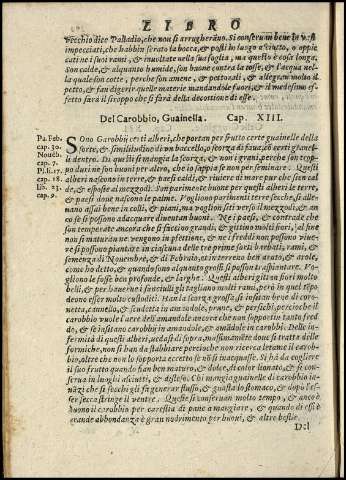 LIBRO
vecchio dice Palladio, che non si arrugheranno. Si conseruan bene in vasi
impecciati, che habbin serato la bocca, & posti in luogo asciutto, o appic
cati ne i suoi rami, & inuoltate nella sua foglia, ma questo è cosa longa.
Son calde, & alquanto humide, son buone contra la tosse, & l'acqua nel
la quale son cotte, perche son amene, & pettorali, & allegran molto il
petto, & fan digerir quelle materie mandandole fuori, & il medesimo ef
fetto farà il siroppo che si farà della decottione di esse.
Del Carobbio, Guainella. Cap. XIII.
Pa. Feb
cap. 30.
Noueb.
cap. 7.
Pli. li. 17.
cap. 18.
lib. 23.
cap. 9.
SOno Garobbij certi alberi, che portan per frutto certe guainelle della
sorte, & similitudine di vn baccello, o scorza di faua, cō certi granel
li dentro. Di questi si mangia la scorza, & non i grani, perche son trop
po duri ne son buoni per altro, che io sappia se non per seminare. Questi
alberi nascono in terre, & paesi caldi, & riuiere di mare pur che sien cal
de, & esposte al mezzodì. Son parimente buone per questi alberi le terre,
& paesi doue nascono le palme. Vogliono parimenti terre secche, si alle
nano assai bene in colli, & piani, ma vogliono siti verso il mezzodì, & an
co se si possono adacquare diuentan buoni. Ne i paesi, & contrade che
son temperate ancora che si faccino grandi, & gittino molti fiori, al fine
non si maturano ne vengono in perfettione, & ne i freddi non possono viue
re si possono piantare in ciascuna delle tre prime sorti barbati, rami, &
semenza di Nouembre, & di Febraio, et in terreno ben arato, & arole,
come ho detto, & quando sono alquanto grossi si possono traspiantare. Vo
gliono le fosse ben profonde, & larghe. Questi alberi gittan fiori molto
belli, & per hauerne i fanciulli gli tagliano molti rami, però in quel tēpo
deono esser molto custoditi. Han la scorza grossa, si inseston bene di coro
netta, cannello, & scudetto in amandole, prune, & perschi, percioche il
carobbio vuole l'aere dell'amandole ancora che non sopportin tanto fred
do, & se insitano carobbij in amandole, & amādole in carobbi. Delle in-
fermità di questi alberi, uedasi di sopra, massimamēte doue si tratta delle
formiche, non si han da stabbiare percioche non ricerca letame il carob-
bio, altre che non lo sopporta eccetto se nō si inacquasse. Si hà da cogliere
il suo frutto quando sian ben maturo, & dolce, di color lionato, & si con-
serua in luoghi asciutti, & disteso. Chi mangia guainelle di carobbio in-
nāzi che si secchi gli fa generar flusso, & guasta lo stomaco, & dopò l'es
ser secca stringe il ventre. Queste si conseruan molto tempo, & anco è
buono il carobbio per carestia di pane a mangiare, & quando di essi è
grande abbondanza è gran nudrimento per buoui, & altre bestie.
Del